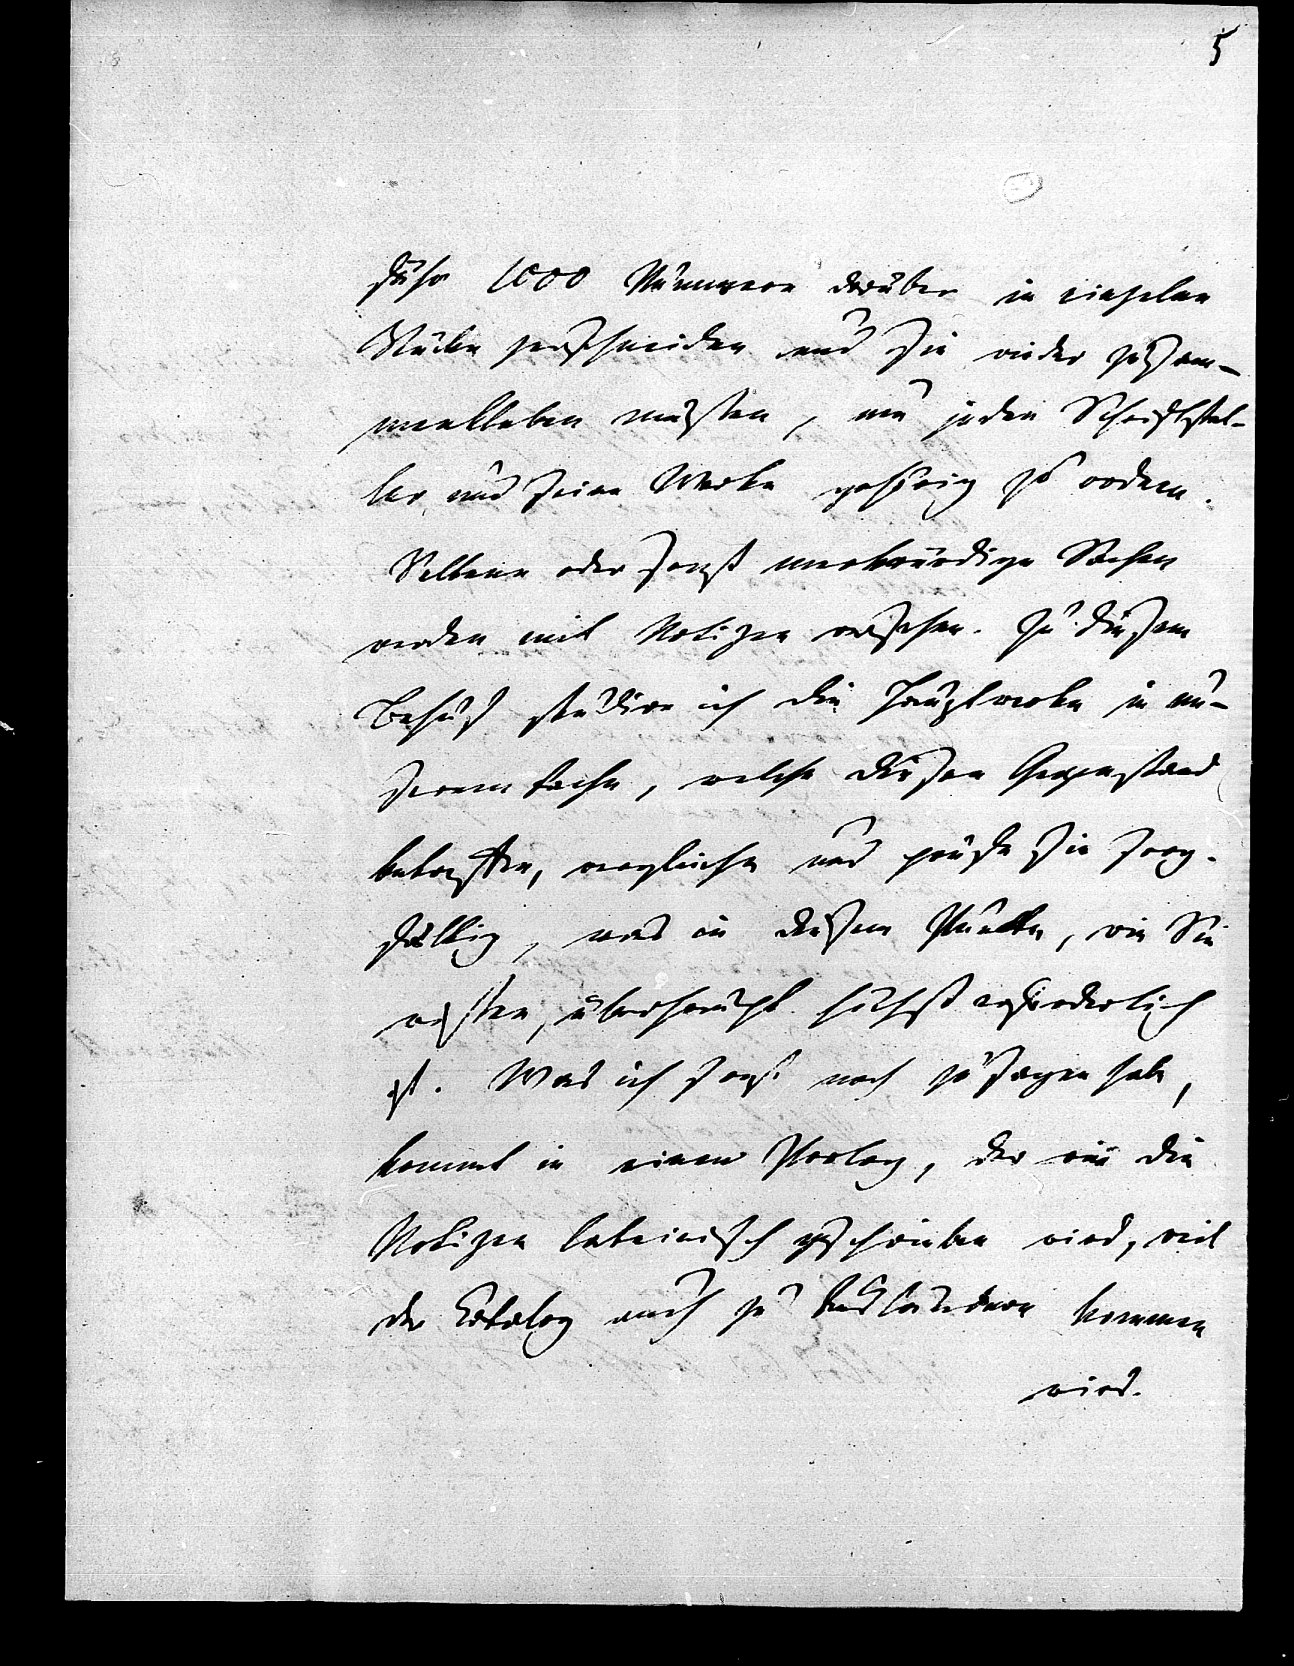 5
fähr 1000 Nummern darüber in einzelne
Stücke zerschneiden und sie wieder zusam-
menkleben mußten, um jeden Schriftstel-
ler und seine Werke gehörig zu ordnen.
Seltene oder sonst merkwürdige Sachen
werden mit Notizen versehen. Zu diesem
Behuf studire ich die Hauptwerke in un-
serem Fache, welche diesen Gegenstand
betreffen, vergleiche und prüfe sie sorg-
fältig, was in diesem Punkte, wie Sie
wissen, überhaupt höchst erforderlich
ist. Was ich sonst noch zu sagen habe,
kommt in einen Prolog, der wie die
Notizen lateinisch geschrieben wird, weil
der Catalog auch zu Ausländern kommen
wird.